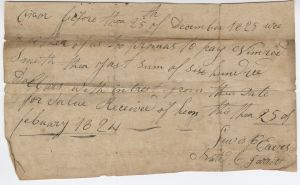 on or before the 25th of December 1825 we
or of us do promis to pay
Smith the Just Sum of Six hundred
Dollars with intrest from this date
for Value Received of him this the 25 of
febuary 1824
Eaves